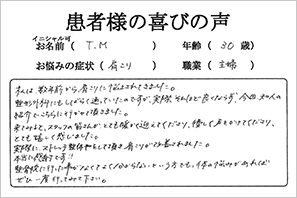 患者様の喜びの声
イニシャル可
お名前（ T.M ） 年齢（ 30 歳）
お悩みの症状（ 肩こり ） 職業（ 主婦 ）
私は数年前から肩こりに悩まされてきました。
整形外科にもしばらく通っていたのですが、実際それほど良くならず、今回知人の
紹介でこちらに行かせて頂きました。
来てみると、スタッフの皆さんがとても暖かく迎えてくださり、優しく声をかけてくださり、
とても嬉しく感じました。
実際に、ストレッチ整体をして頂き肩こりが改善されました。
本当に感謝です!!
整骨院に行った事がなくてよく分からないという方でも、体の悩みがあれば
ぜひ一度行ってみて下さい。